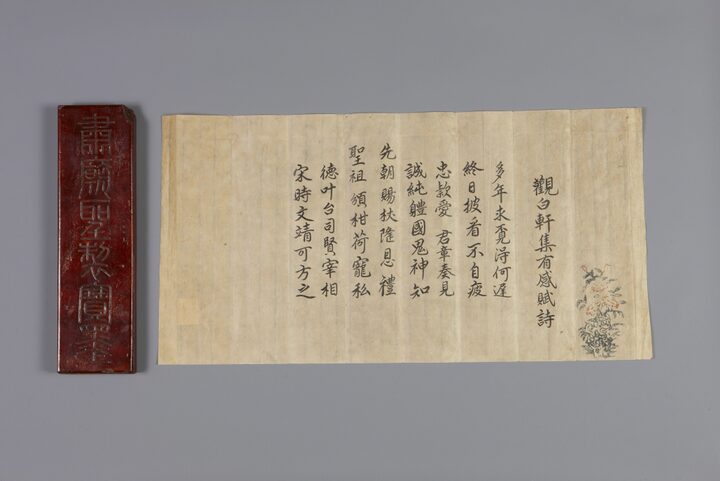 觀白軒集有感賦詩
多年求覓得何遲
終日披看不自疲
忠款愛 君章奏見
誠純軆國鬼神知
先朝賜杖隆恩禮
聖祖頒柑荷寵私
德叶台司賢宰相
宋時文靖可方之
肅廟製寶墨